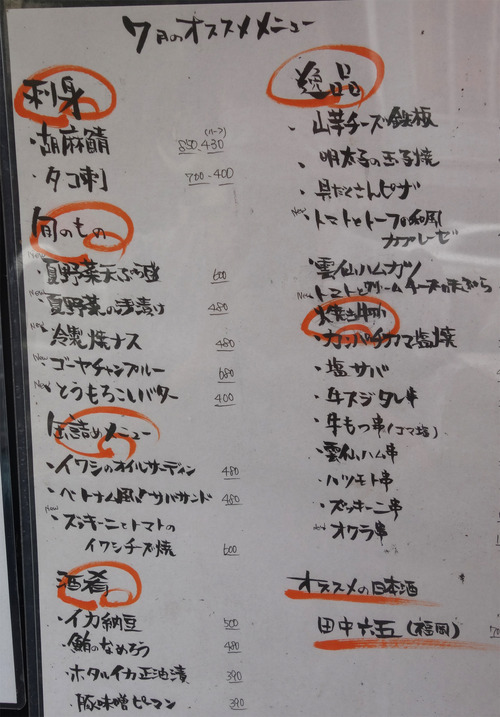 7月のオススメメニュー
刺身
・胡麻鯖 850-430
(ハーフ)
・タコ刺 700-400
旬のもの
New
・夏野菜天ぷら盛 600
New
・夏野菜の浅漬け 480
New
・冷製焼ナス 480
New
・ゴーヤチャンプルー 680
New
・とうもろこしバター 400
缶詰めメニュー
・イワシのオイルサーディン 480
・ベトナム風!サバサンド 480
New
・ズッキーニとトマトの
イワシチーズ焼 600
酒肴
・イカ納豆 500
・鮪のなめろう 480
・ホタルイカ正油漬 390
・豚味噌ピーマン 390
逸品
・山芋チーズ鉄板
・明太子の玉子焼
・具だくさんピザ
New
・トマトとトーフの和風
カプレーゼ
・雲仙ハムカツ
New
・トマトとクリームチーズの天ぷら
焼き物
・カンパチカマ塩焼
・塩サバ
・牛スジタレ串
・牛もつ串(ゴマ塩)
・雲仙ハム串
・ハツモト串
・ズッキーニ串
New
・オクラ串
オススメの日本酒
田中六五(福岡)